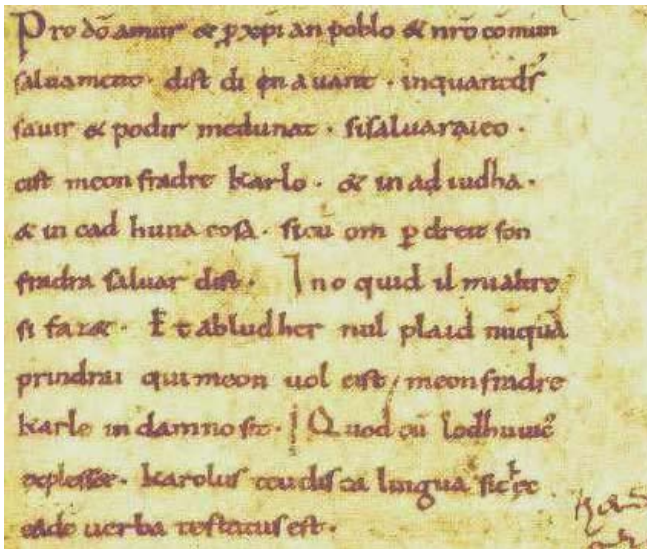 Pro dō amur & ꝓ xp̄i an poblo & nrō cōmun
saluament. dist di en auant. inquantdſ̄
sauir & podir medunat. sisaluaraieo.
cist meon fradre karlo. & in ad iudha.
& in cad huna cosa. sicū om ꝑ dreit son
fradra saluar dist. Ino quid il mialtre
si faz&. Et abludher nul plaid nūquā
prindrai qui meon uol cist meonfradre
karle in damno sit. Quod cū lodhuuic᾽
explesset. karolus teudisca lingua sic ec
eadē uerba testatus est.